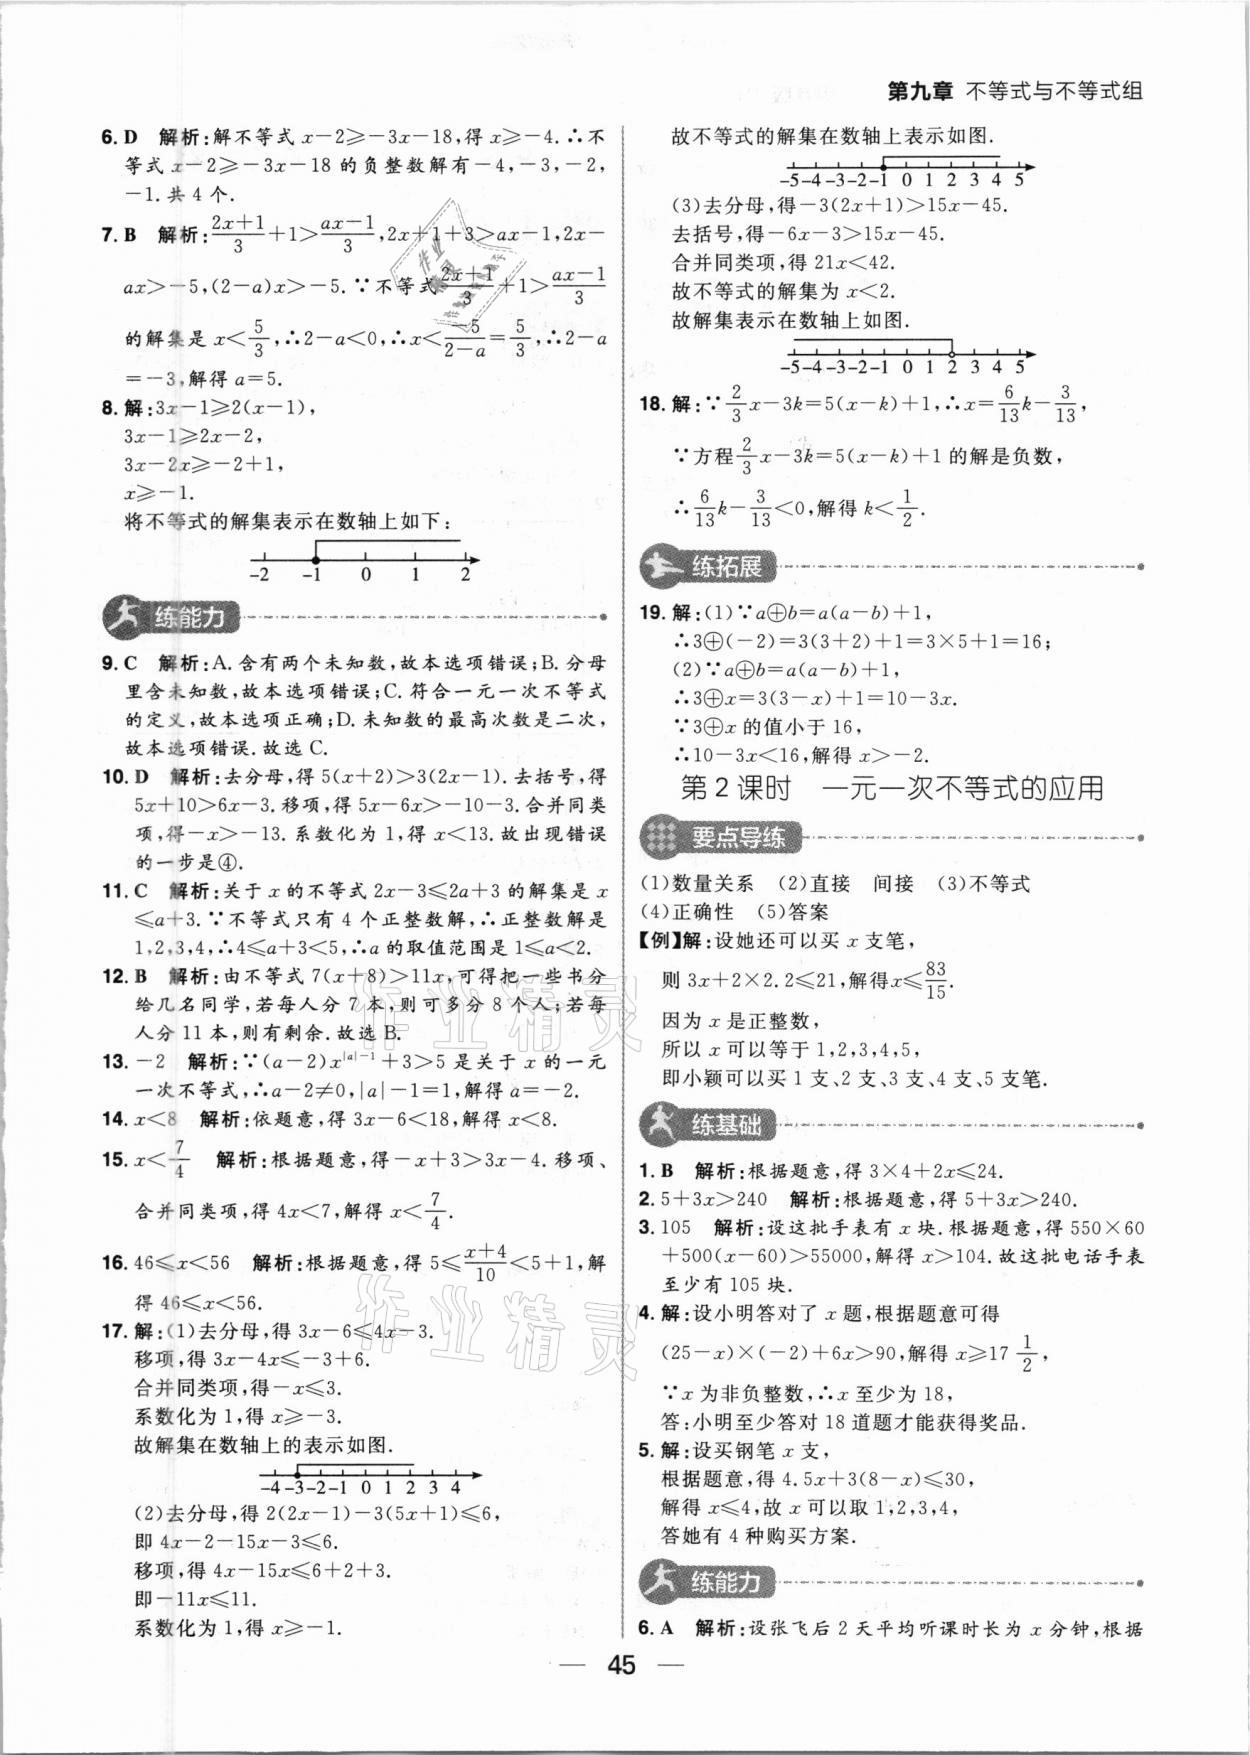 第九章 不等式与不等式组
6. D 解析:解不等式 x-2≥-3x-18,得 x≥-4.∴不
等式 x-2≥-3x-18 的负整数解有-4,-3,-2,
-1.共 4 个.
7. B 解析:\frac{2x+1}{3}+1>\frac{ax-1}{3},2x+1+3>ax-1,2x-
ax>-5,(2-a)x>-5.∵不等式\frac{2x+1}{3}+1>\frac{ax-1}{3}
的解集是 x<\frac{5}{3},∴2-a<0,∴x<\frac{-5}{2-a}=\frac{5}{3},∴2-a
=-3,解得 a=5.
8. 解:3x-1≥2(x-1),
3x-1≥2x-2,
3x-2x≥-2+1,
x≥-1.
将不等式的解集表示在数轴上如下:
-2 -1 0 1 2
练能力
9. C 解析:A.含有两个未知数,故本选项错误;B.分母
里含未知数,故本选项错误;C.符合一元一次不等式
的定义,故本选项正确;D.未知数的最高次数是二次,
故本选项错误.故选 C.
10. D 解析:去分母,得 5(x+2)>3(2x-1).去括号,得
5x+10>6x-3.移项,得 5x-6x>-10-3.合并同类
项,得-x>-13.系数化为 1,得 x<13.故出现错误
的一步是④.
11. C 解析:关于 x 的不等式 2x-3≤2a+3 的解集是 x
≤a+3.∵不等式只有 4 个正整数解,∴正整数解是
1,2,3,4,∴4≤a+3<5,∴a 的取值范围是 1≤a<2.
12. B 解析:由不等式 7(x+8)>11x,可得把一些书分
给几名同学,若每人分 7 本,则可多分 8 个人;若每
人分 11 本,则有剩余.故选 B.
13. -2 解析:∵(a-2)x^{|a|-1}+3>5 是关于 x 的一元
一次不等式,∴a-2≠0,|a|-1=1,解得 a=-2.
14. x<8 解析:依题意,得 3x-6<18,解得 x<8.
15. x<\frac{7}{4} 解析:根据题意,得-x+3>3x-4.移项、
合并同类项,得 4x<7,解得 x<\frac{7}{4}.
16. 46≤x<56 解析:根据题意,得 5≤\frac{x+4}{10}<5+1,解
得 46≤x<56.
17. 解:(1)去分母,得 3x-6≤4x-3.
移项,得 3x-4x≤-3+6.
合并同类项,得-x≤3.
系数化为 1,得 x≥-3.
故解集在数轴上的表示如图.
-4-3-2-1 0 1 2 3 4
(2)去分母,得 2(2x-1)-3(5x+1)≤6,
即 4x-2-15x-3≤6.
移项,得 4x-15x≤6+2+3.
即-11x≤11.
系数化为 1,得 x≥-1.
故不等式的解集在数轴上表示如图.
-5-4-3-2-1 0 1 2 3 4 5
(3)去分母,得-3(2x+1)>15x-45.
去括号,得-6x-3>15x-45.
合并同类项,得 21x<42.
故不等式的解集为 x<2.
故解集表示在数轴上如图.
-5-4-3-2-1 0 1 2 3 4 5
18. 解:∵\frac{2}{3}x-3k=5(x-k)+1,∴x=\frac{6}{13}k-\frac{3}{13},
∵方程\frac{2}{3}x-3k=5(x-k)+1 的解是负数,
∴\frac{6}{13}k-\frac{3}{13}<0,解得 k<\frac{1}{2}.
练拓展
19. 解:(1)∵a⊕b=a(a-b)+1,
∴3⊕(-2)=3(3+2)+1=3×5+1=16;
(2)∵a⊕b=a(a-b)+1,
∴3⊕x=3(3-x)+1=10-3x.
∵3⊕x 的值小于 16,
∴10-3x<16,解得 x>-2.
第 2 课时 一元一次不等式的应用
要点导练
(1)数量关系 (2)直接 间接 (3)不等式
(4)正确性 (5)答案
【例】解:设她还可以买 x 支笔,
则 3x+2×2.2≤21,解得x≤\frac{83}{15}.
因为 x 是正整数,
所以 x 可以等于 1,2,3,4,5,
即小颖可以买 1 支、2 支、3 支、4 支、5 支笔.
练基础
1. B 解析:根据题意,得 3×4+2x≤24.
2. 5+3x>240 解析:根据题意,得 5+3x>240.
3. 105 解析:设这批手表有 x 块.根据题意,得 550×60
+500(x-60)>55000,解得 x>104.故这批电话手表
至少有 105 块.
4. 解:设小明答对了 x 题,根据题意可得
(25-x)×(-2)+6x>90,解得 x≥17\frac{1}{2},
∵x 为非负整数,∴x 至少为 18,
答:小明至少答对 18 道题才能获得奖品.
5. 解:设买钢笔 x 支,
根据题意,得 4.5x+3(8-x)≤30,
解得 x≤4,故 x 可以取 1,2,3,4,
答她有 4 种购买方案.
练能力
6. A 解析:设张飞后 2 天平均听课时长为 x 分钟,根据
45
作业精灵
作业精灵